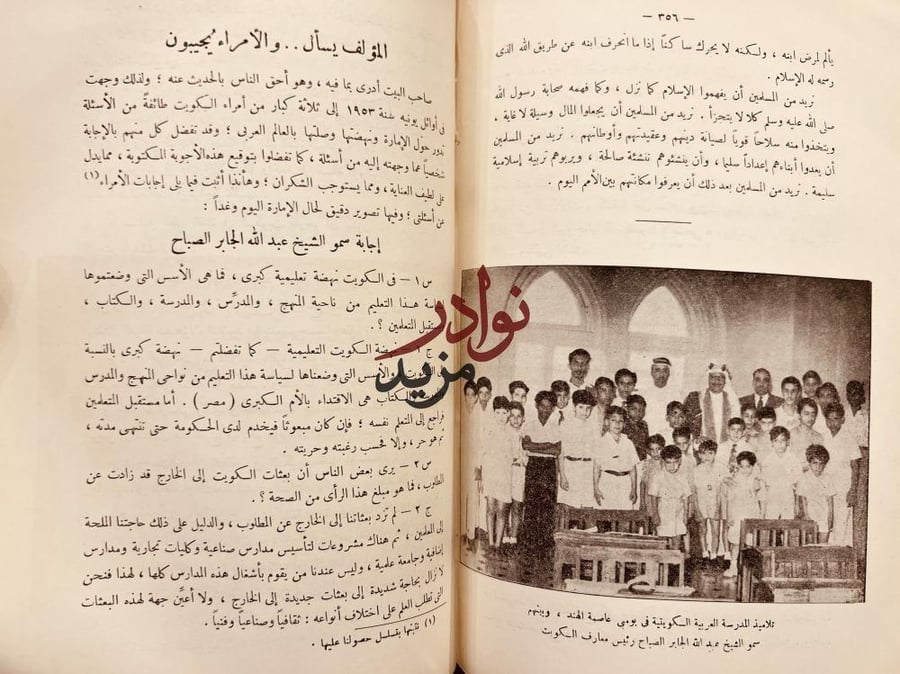 — ٣٥٦ —
يألم لمرض ابنه ، ولكنه لا يحرك ساكناً إذا ما انحرف ابنه عن طريق الله الذى
رسمه له الإسلام .
نريد من المسلمين أن يفهموا الإسلام كما نزل ، وكما فهمه صحابة رسول الله
صلى الله عليه وسلم كلا لا يتجزأ . نريد من المسلمين أن يجعلوا المال وسيلة لا غاية .
ويتخذوا منه سلاحاً قوياً لصيانة دينهم وعقيدتهم وأوطانهم . نريد من المسلمين
أن يعدوا أبناءهم إعداداً سليما ، وأن ينشئوهم تنشئة صالحة ، ويربوهم تربية إسلامية
سليمة . نريد من المسلمين بعد ذلك أن يعرفوا مكانتهم بين الأمم اليوم .
تلاميذ المدرسة العربية الكويتية فى بومبى عاصمة الهند ، وبينهم
سمو الشيخ عبد الله الجابر الصباح رئيس معارف الكويت
المؤلف يسأل . . والأمراء يُجيبون
صاحب البيت أدرى بما فيه ، وهو أحق الناس بالحديث عنه ؛ ولذلك وجهت
فى أوائل يونيه سنة ١٩٥٣ إلى ثلاثة كبار من أمراء الكويت طائفةً من الأسئلة
تدور حول الإمارة ونهضتها وصلتها بالعالم العربى ؛ وقد تفضل كل منهم بالإجابة
شخصياً عما وجهته إليه من أسئلة ، كما تفضلوا بتوقيع هذه الأجوبة المكتوبة ، مما يدل
على لطيف العناية ، ومما يستوجب الشكران ؛ وهأنذا أثبت فيما يلى إجابات الأمراء (١)
عن أسئلتى ؛ وفيها تصوير دقيق لحال الإمارة اليوم وغداً :
إجابة سمو الشيخ عبد الله الجابر الصباح
س ١ — فى الكويت نهضة تعليمية كبرى ، فما هى الأسس التى وضعتموها
لسياسة هذا التعليم من ناحية المنهج ، والمدرِّس ، والمدرسة ، والكتاب ،
ومستقبل المتعلمين ؟ .
ج ١ — نهضة الكويت التعليمية — كما تفضلتم — نهضة كبرى بالنسبة
للكويت . والأسس التى وضعناها لسياسة هذا التعليم من نواحى المنهج والمدرس
والكتاب هى الاقتداء بالأم الكبرى ( مصر ) . أما مستقبل المتعلمين
فراجع إلى المتعلم نفسه ؛ فإن كان مبعوثاً فيخدم لدى الحكومة حتى تنتهى مدته ،
ثم هو حر ، وإلا فحسب رغبته وحريته .
س ٢ — يرى بعض الناس أن بعثات الكويت إلى الخارج قد زادت عن
المطلوب ، فما هو مبلغ هذا الرأى من الصحة ؟ .
ج ٢ — لم تزد بعثاتنا إلى الخارج عن المطلوب ، والدليل على ذلك حاجتنا الملحة
إلى المعلمين ، ثم هناك مشروعات لتأسيس مدارس صناعية وكليات تجارية ومدارس
إضافية وجامعة علمية ، وليس عندنا من يقوم بأشغال هذه المدارس كلها ، لهذا فنحن
لا نزال بحاجة شديدة إلى بعثات جديدة إلى الخارج ، ولا أعيِّن جهة لهذه البعثات
التى تطلب العلم على اختلاف أنواعه : ثقافياً وصناعياً وفنياً .
(١) نثبتها بتسلسل حصولنا عليها .
نوادر
مزيد